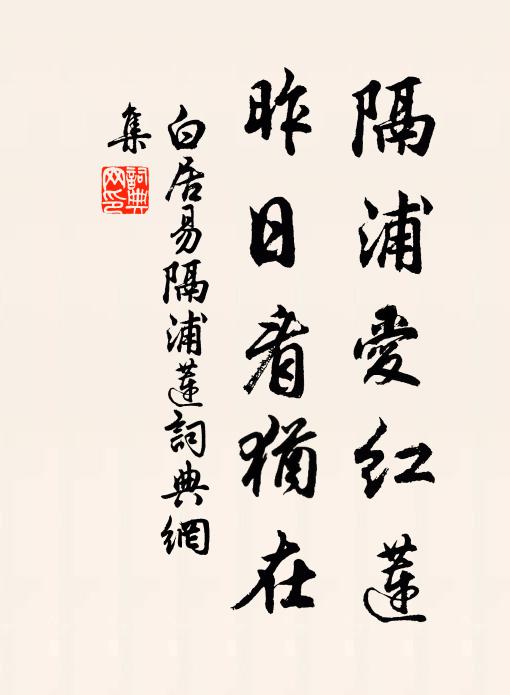 隔浦愛紅蓮
昨日看猶在
白居易隔浦蓮詞典網
集
詞典网印